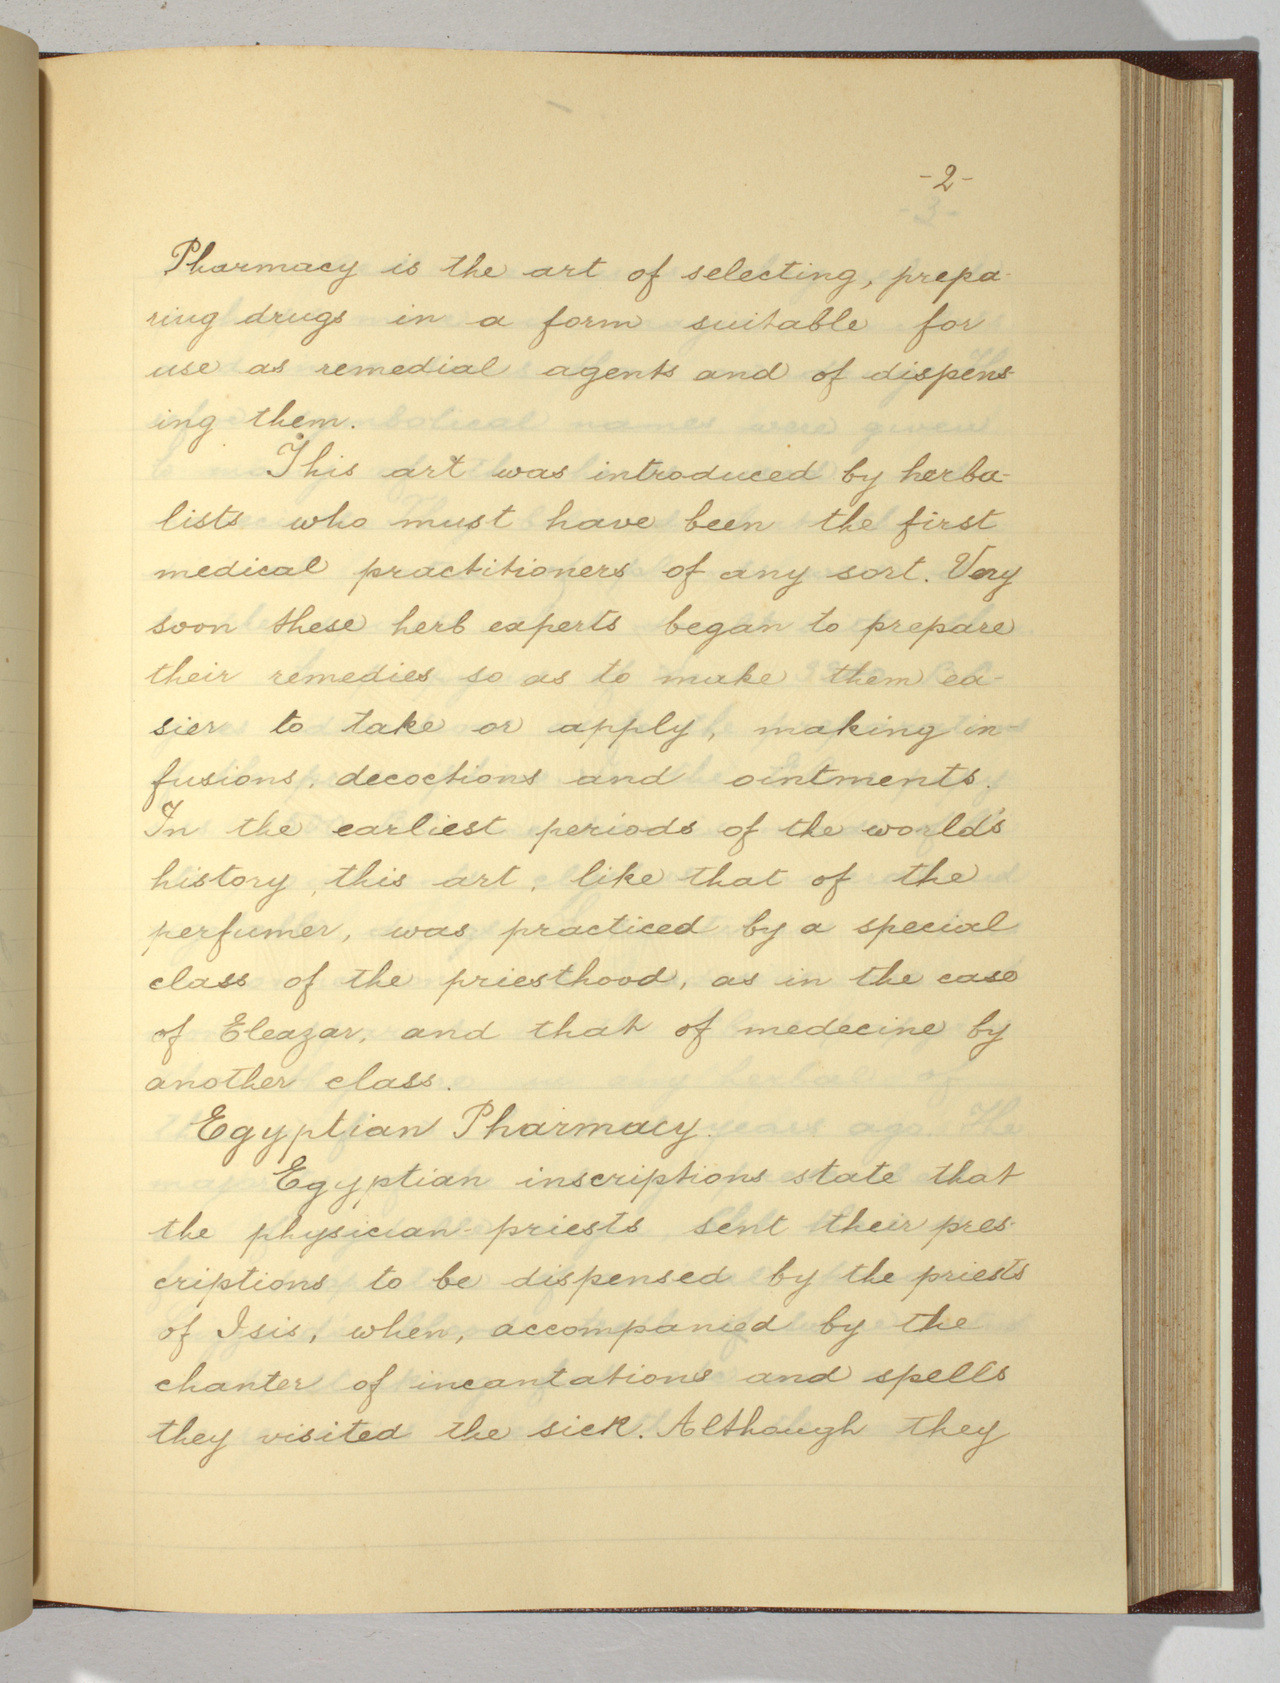 -2-
Pharmacy is the art of selecting, prepa-
ring drugs in a form suitable for
use as remedial agents and of dispens-
ing them.
This art was introduced by herba-
lists who must have been the first
medical practitioners of any sort. Very
soon these herb experts began to prepare
their remedies so as to make them ea-
sier to take or apply, making in-
fusions, decoctions and ointments.
In the earliest periods of the world's
history, this art, like that of the
perfumer, was practiced by a special
class of the priesthood, as in the case
of Eleazar, and that of medecine by
another class.
Egyptian Pharmacy.
Egyptian inscriptions state that
the physician-priests sent their pres-
criptions to be dispensed by the priests
of Isis, when, accompanied by the
chanter of incantations and spells
they visited the sick. Although they